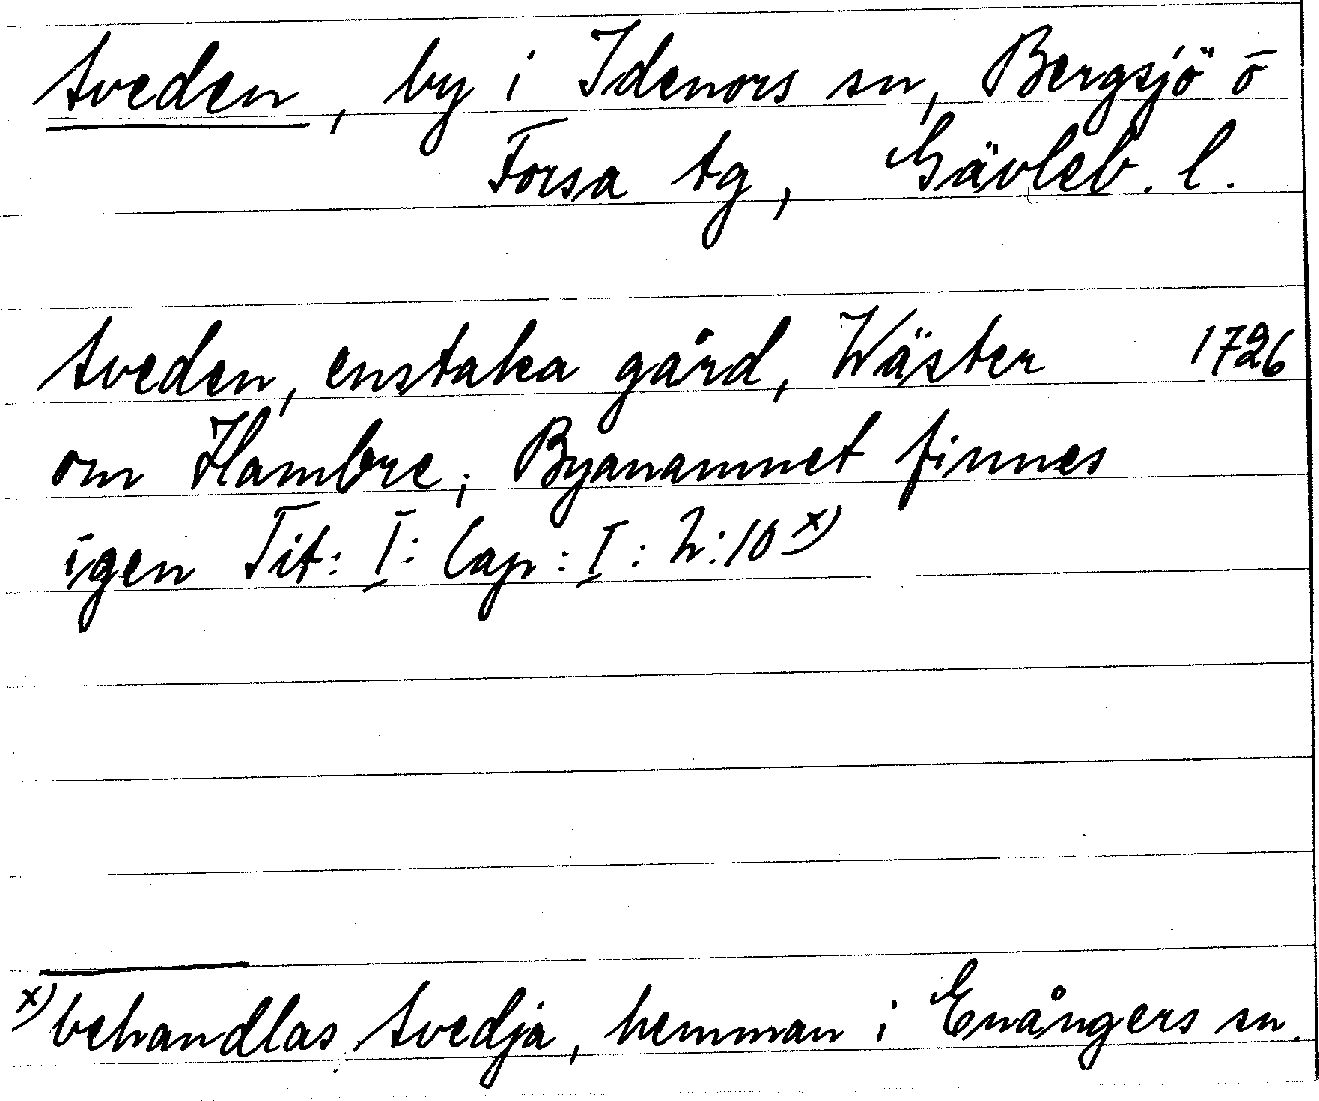 Sveden, by i Idenors sn, Bergsjö o
Forsa tg, Gävleb. l.
Sveden, enstaka gård, Wäster 1726
om Hambre; Byanamnet finnes
igen Tit: I: Cap: I: §:10 x)
x) behandlas Svedja, hemman i Enångers sn.